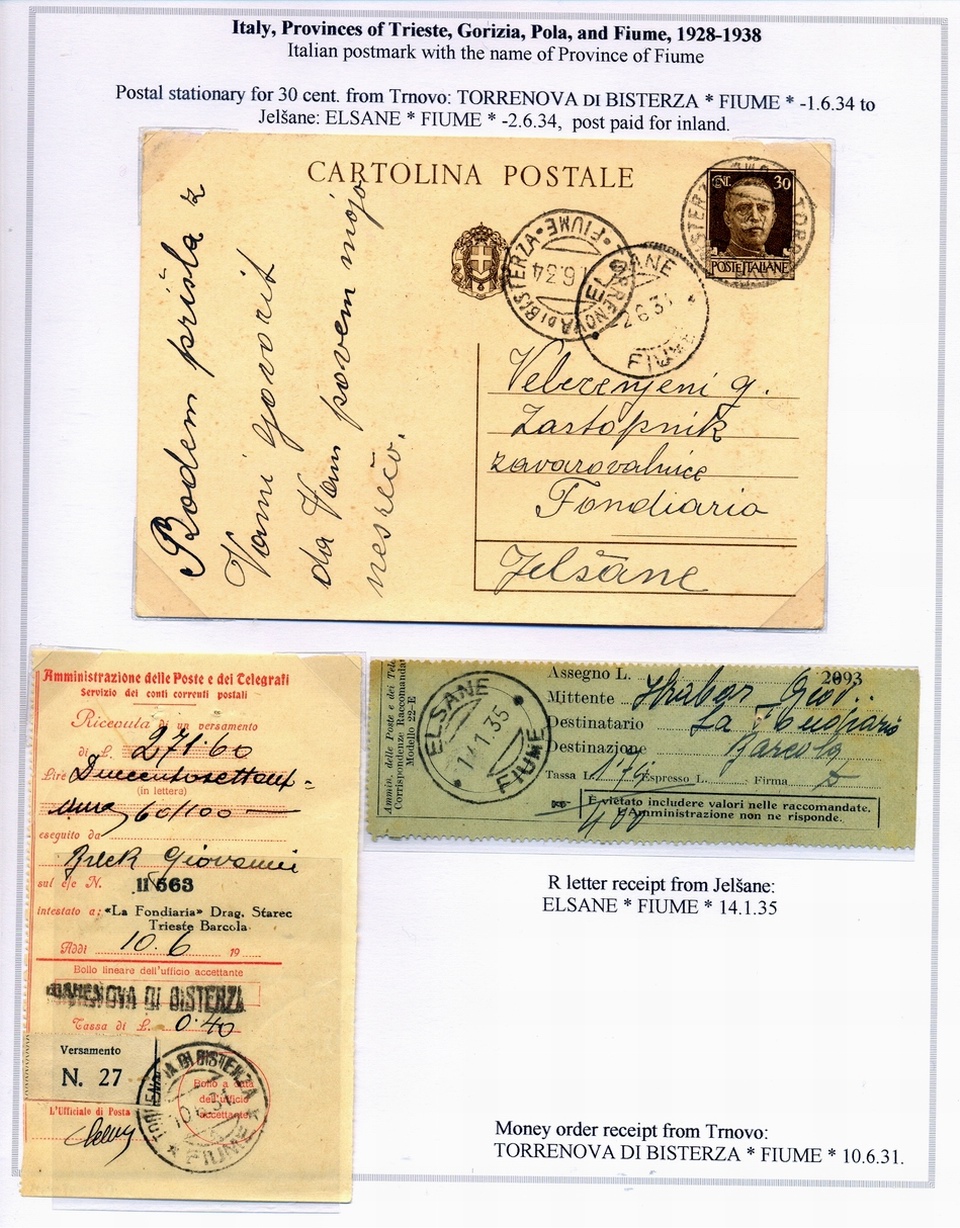 Italy, Provinces of Trieste, Gorizia, Pola, and Fiume, 1928-1938
Italian postmark with the name of Province of Fiume
Postal stationary for 30 cent. from Trnovo: TORRENOVA DI BISTERZA * FIUME * -1.6.34 to
Jelšane: ELSANE * FIUME * -2.6.34, post paid for inland.
CARTOLINA POSTALE
CENT. 30
POSTE ITALIANE
TORRENOVA DI BISTERZA * FIUME *
1.6.34
ELSANE
2.6.34
FIUME
Bodem prišla z
Vami govorit
da Vam povem mojo
nesrečo.
Velecenjeni g.
Zastopnik
zavarovalnice
Fondiaria
Jelšane
Amministrazione delle Poste e dei Telegrafi
Servizio dei conti correnti postali
Ricevuta di un versamento
di L. 271.60
Lire Duecentosettant-
(in lettera)
una 60/100
eseguito da
Giovanni
sul c/c N. 11563
intestato a: «La Fondiaria» Drag. Starec
Trieste Barcola
Addì 10.6 19
Bollo lineare dell'ufficio accettante
TORRENOVA DI BISTERZA
Tassa di L. 0.40
Versamento
N. 27
L'Ufficiale di Posta
Bollo a data
dell'ufficio
accettante
TORRENOVA DI BISTERZA * FIUME *
Ammin. delle Poste e dei Tel
Corrispondenze Raccomandate
Modello 22-E
ELSANE
14.1.35
FIUME
Assegno L. 2093
Mittente Hrabar Giov.
Destinatario La Fondiaria
Destinazione Barcola
Tassa L. Espresso L. Firma
È vietato includere valori nelle raccomandate.
L'Amministrazione non ne risponde.
R letter receipt from Jelšane:
ELSANE * FIUME * 14.1.35
Money order receipt from Trnovo:
TORRENOVA DI BISTERZA * FIUME * 10.6.31.